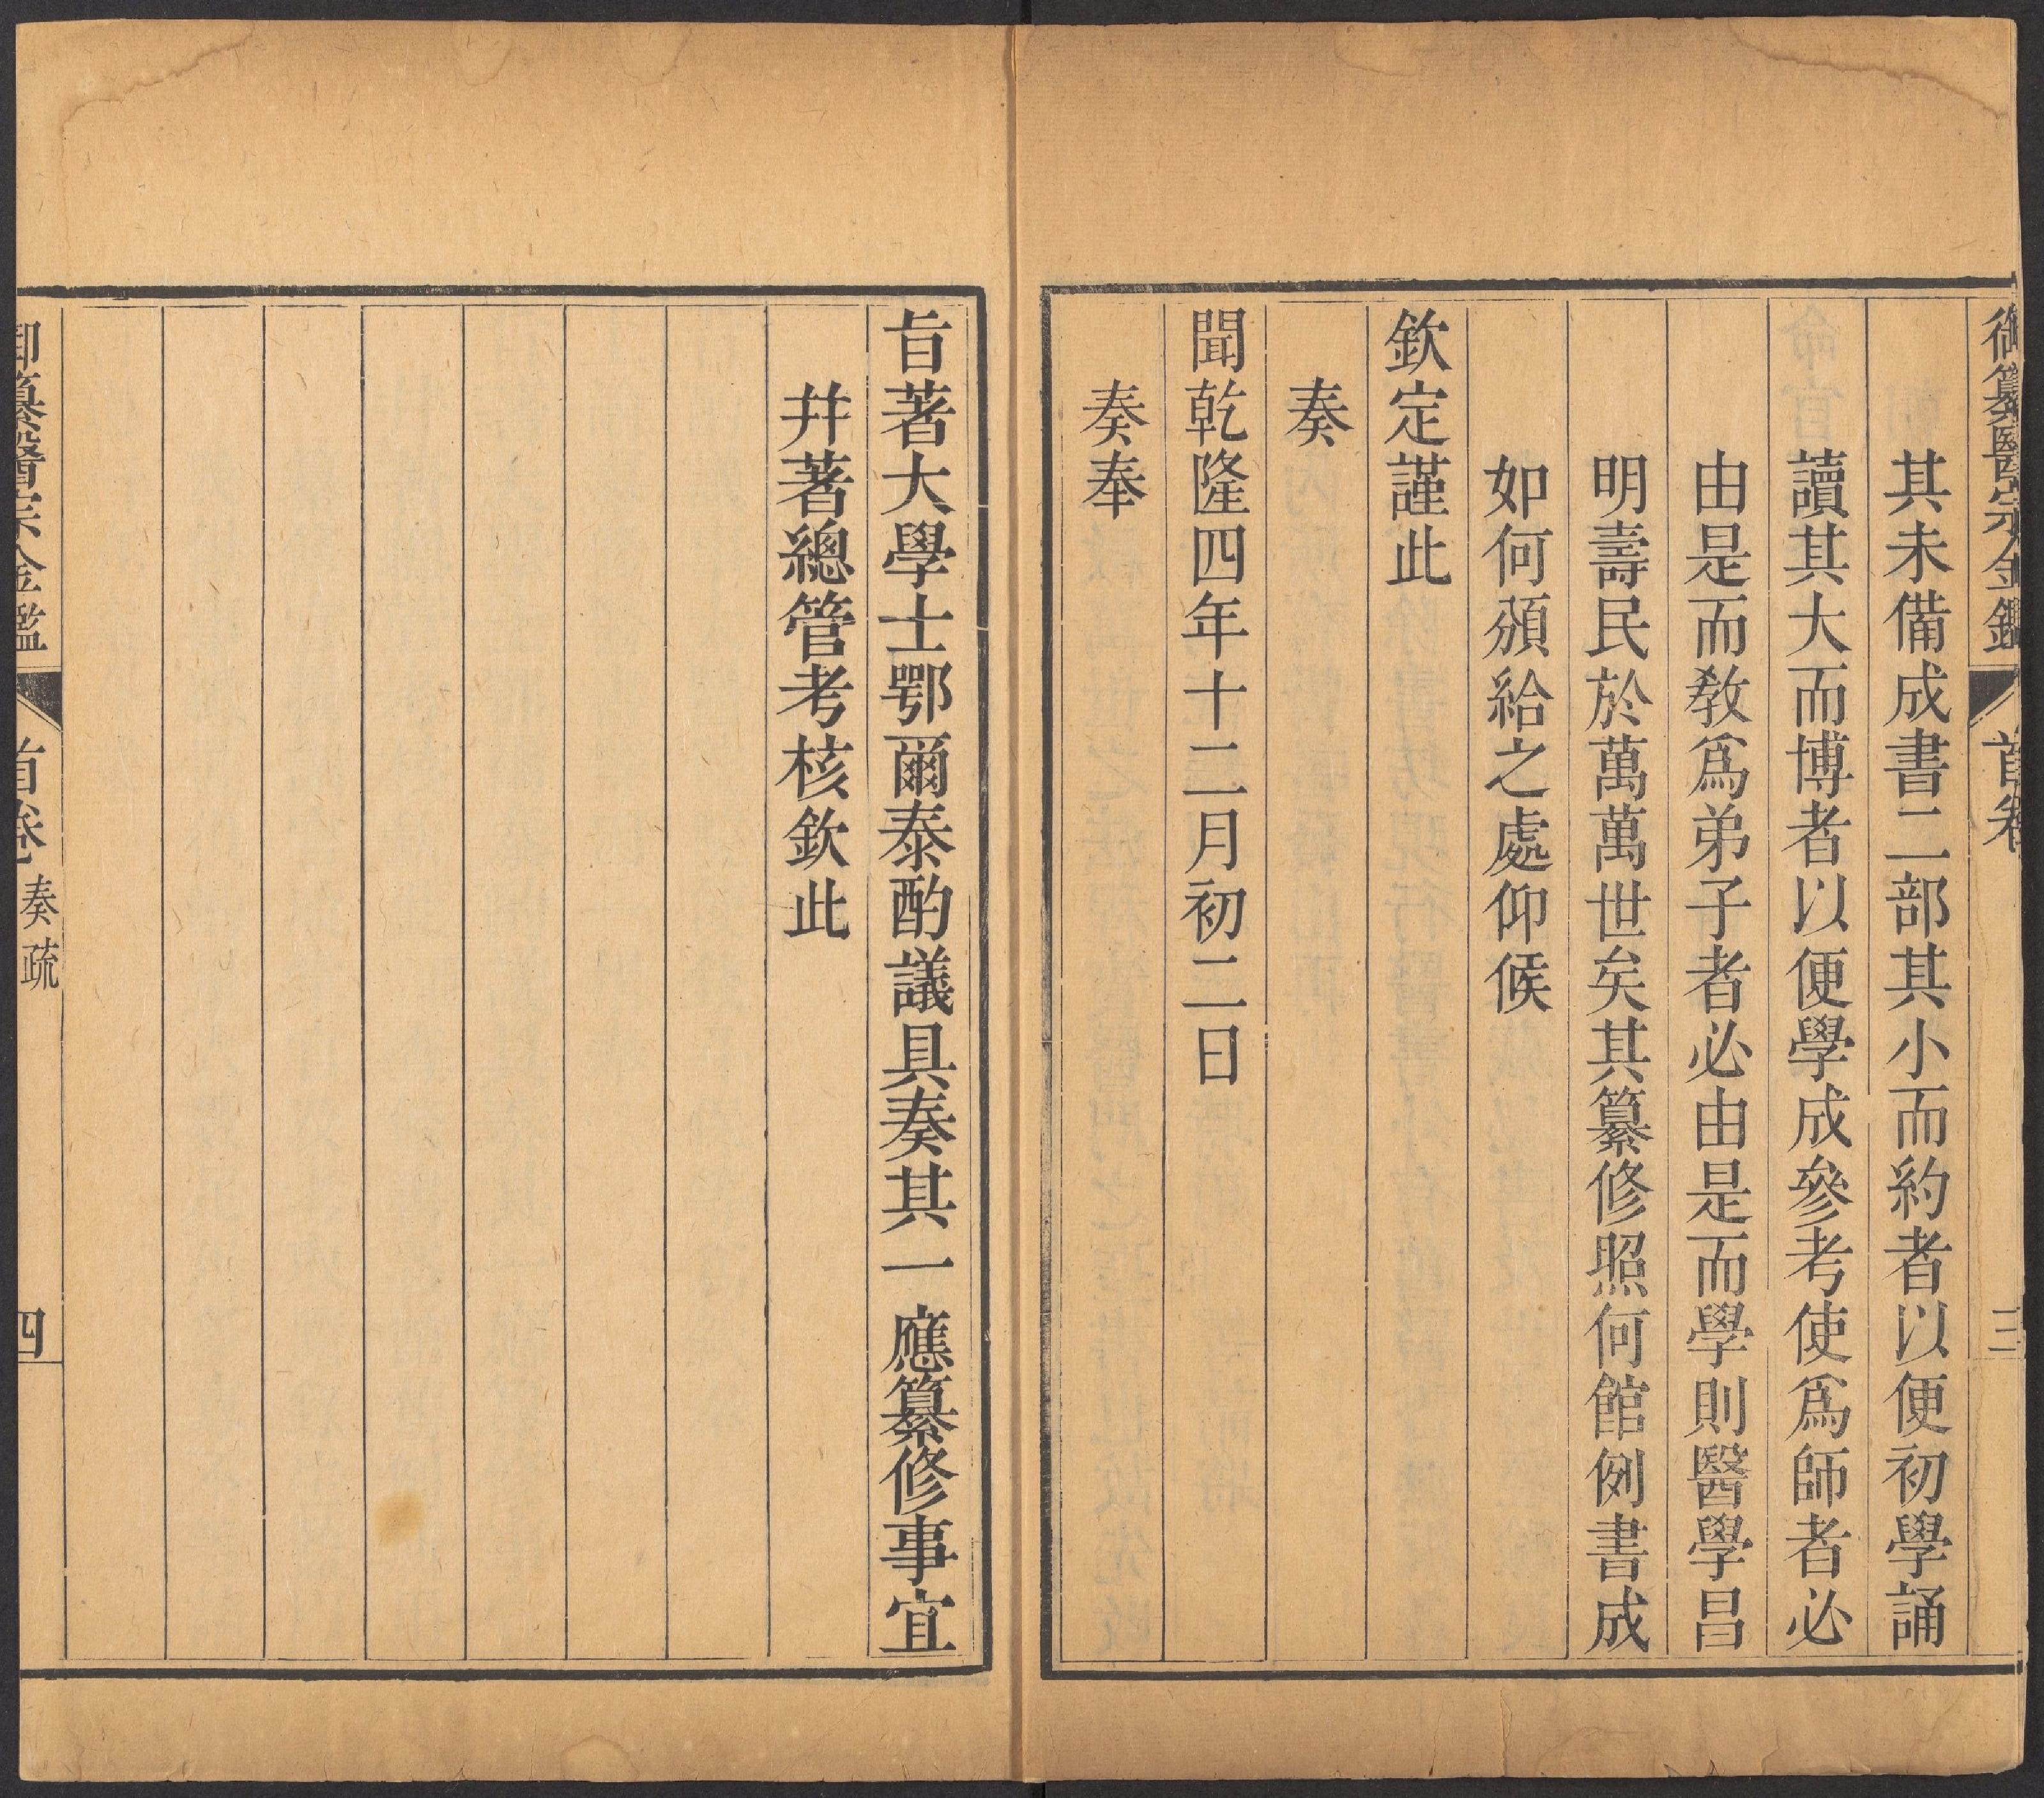 御纂醫宗金鑑 首卷 三
其未備成書二部其小而約者以便初學誦
讀其大而博者以便學成參考使爲師者必
由是而教爲弟子者必由是而學則醫學昌
明壽民於萬萬世矣其纂修照何館例書成
如何頒給之處仰候
欽定謹此
奏
聞乾隆四年十二月初二日
奏奉
旨著大學士鄂爾泰酌議具奏其一應纂修事宜
幷著總管考核欽此
御纂醫宗金鑑 首卷 奏疏 四